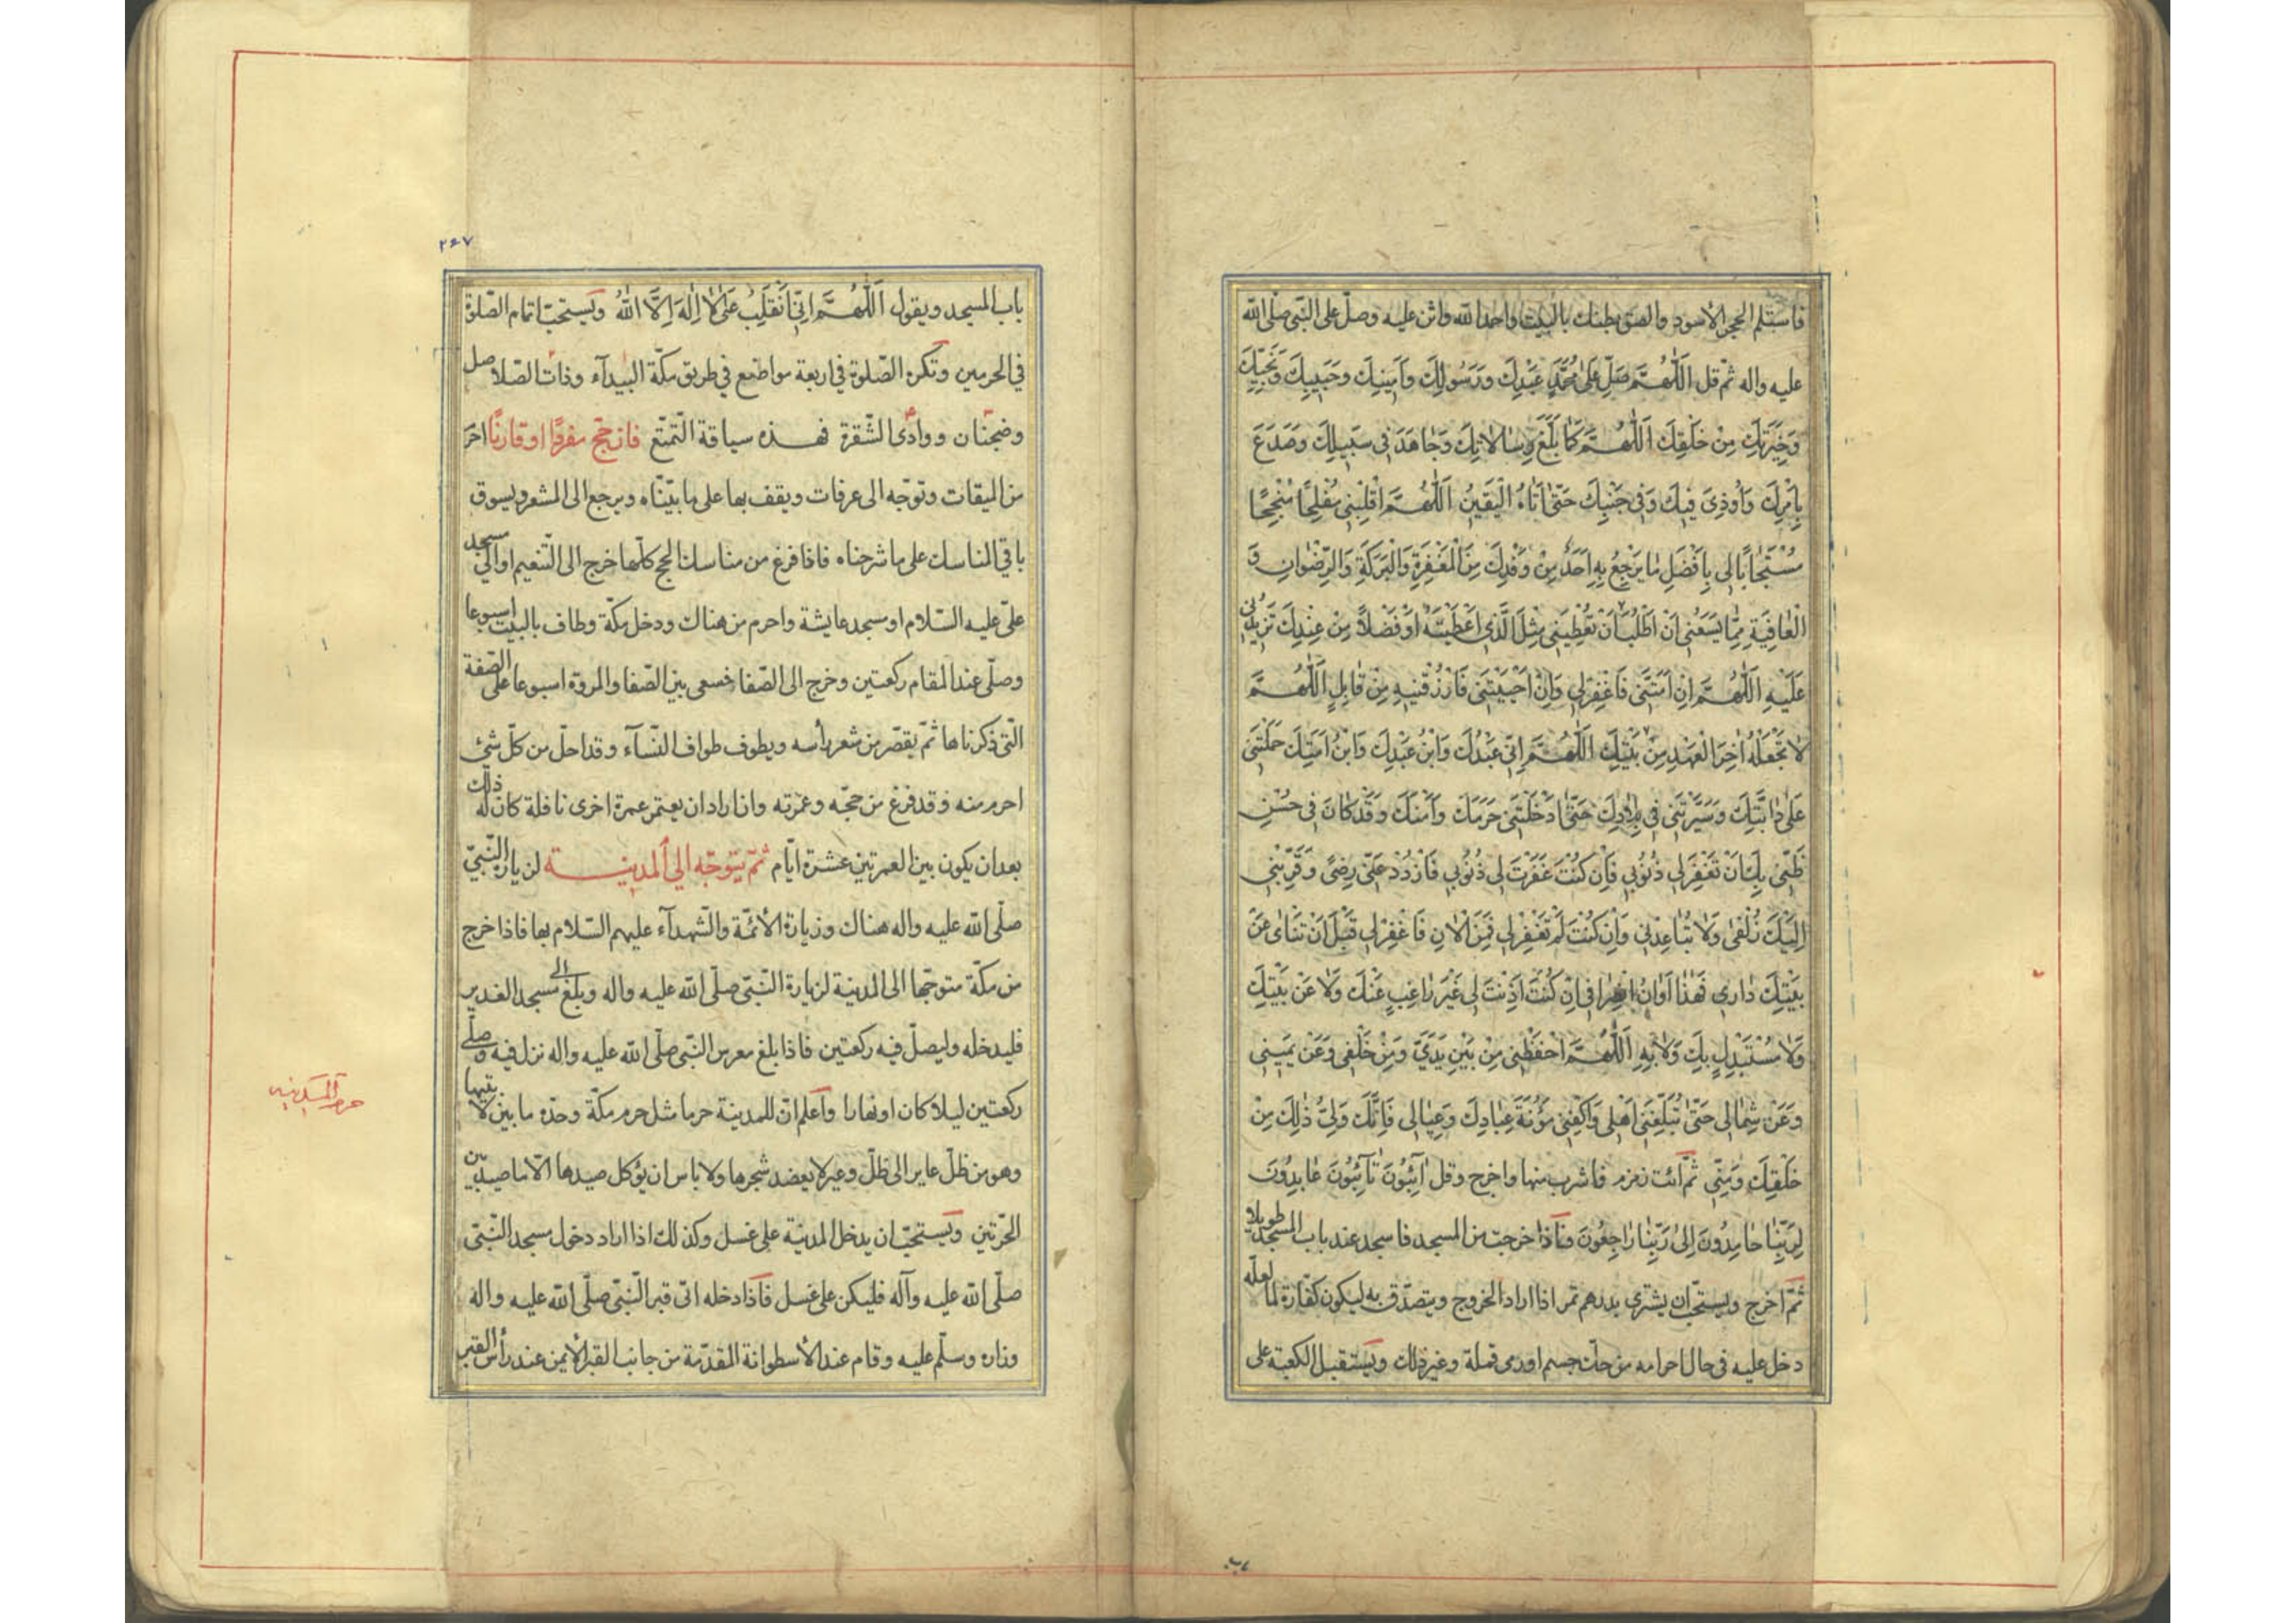 فاستلم الحجر الأسود والصق بطنك بالبيت واحمد الله واثن عليه وصلّ على النّبيّ صلّى الله
عليه واله ثمّ قل اَللّٰهُمَّ صَلِّ عَلىٰ مُحَمَّدٍ عَبْدِكَ وَرَسُولِكَ وَاَمِينِكَ وَحَبِيبِكَ وَنَجِيِّكَ
وَخِيَرَتِكَ مِنْ خَلْقِكَ اَللّٰهُمَّ كَمٰا بَلَّغَ رِسٰالاٰتِكَ وَجٰاهَدَ فِي سَبِيلِكَ وَصَدَعَ
بِاَمْرِكَ وَاُوذِيَ فِيكَ وَفِي جَنْبِكَ حَتّىٰ اَتٰاهُ الْيَقِينُ اَللّٰهُمَّ اقْلِبْنِي مُفْلِحًا مُنْجِحًا
مُسْتَجٰابًا لِي بِاَفْضَلِ مٰا يَرْجِعُ بِهِ اَحَدٌ مِنْ وَفْدِكَ مِنَ الْمَغْفِرَةِ وَالْبَرَكَةِ وَالرِّضْوٰانِ وَ
الْعٰافِيَةِ مِمّٰا يَسَعُنِي اَنْ اَطْلُبَ اَنْ تُعْطِيَنِي مِثْلَ الَّذِي اَعْطَيْتَهُ اَوْ فَضْلاً مِنْ عِنْدِكَ تَزِيدُنِي
عَلَيْهِ اَللّٰهُمَّ اِنْ اَمَتَّنِي فَاغْفِرْ لِي وَاِنْ اَحْيَيْتَنِي فَارْزُقْنِيهِ مِنْ قٰابِلٍ اَللّٰهُمَّ
لاٰ تَجْعَلْهُ اٰخِرَ الْعَهْدِ مِنْ بَيْتِكَ اَللّٰهُمَّ اِنِّي عَبْدُكَ وَابْنُ عَبْدِكَ وَابْنُ اَمَتِكَ حَمَلْتَنِي
عَلىٰ دٰابَّتِكَ وَسَيَّرْتَنِي فِي بِلاٰدِكَ حَتّىٰ اَدْخَلْتَنِي حَرَمَكَ وَاَمْنَكَ وَقَدْ كٰانَ فِي حُسْنِ
ظَنِّي بِكَ اَنْ تَغْفِرَ لِي ذُنُوبِي فَاِنْ كُنْتَ غَفَرْتَ لِي ذُنُوبِي فَازْدَدْ عَنِّي رِضًى وَقَرِّبْنِي
اِلَيْكَ زُلْفىٰ وَلاٰ تُبٰاعِدْنِي وَاِنْ كُنْتَ لَمْ تَغْفِرْ لِي فَمِنَ الْاٰنِ فَاغْفِرْ لِي قَبْلَ اَنْ تَنْاٰى عَنْ
بَيْتِكَ دٰارِي فَهٰذٰا اَوٰانُ انْصِرٰافِي اِنْ كُنْتَ اَذِنْتَ لِي غَيْرَ رٰاغِبٍ عَنْكَ وَلاٰ عَنْ بَيْتِكَ
وَلاٰ مُسْتَبْدِلٍ بِكَ وَلاٰ بِهِ اَللّٰهُمَّ احْفَظْنِي مِنْ بَيْنِ يَدَيَّ وَمِنْ خَلْفِي وَعَنْ يَمِينِي
وَعَنْ شِمٰالِي حَتّىٰ تُبَلِّغَنِي اَهْلِي وَاكْفِنِي مَؤُنَةَ عِبٰادِكَ وَعِيٰالِي فَاِنَّكَ وَلِيُّ ذٰلِكَ مِنْ
خَلْقِكَ وَمِنِّي ثمّ ائت زمزم فاشرب منها واخرج وقل اٰئِبُونَ تٰائِبُونَ عٰابِدُونَ
لِرَبِّنٰا حٰامِدُونَ اِلىٰ رَبِّنٰا رٰاجِعُونَ فاذا خرجت من المسجد فاسجد عند باب المسجد طويلا
ثمّ اخرج ويستحبّ ان يشتري بدرهم تمر اذا اراد الخروج ويتصدّق به ليكون كفّارة لما لعلّه
دخل عليه في حال احرامه من حكّ جسم او رمى قملة وغير ذلك ويستقبل الكعبة على
۲۶۷
باب المسجد ويقول اَللّٰهُمَّ اِنِّي اَنْقَلِبُ عَلىٰ لاٰ اِلٰهَ اِلاَّ اللهُ ويستحبّ اتمام الصّلوة
في الحرمين وتكره الصّلوة في اربعة مواضع في طريق مكّة البيدآء وذات الصّلاصل
وضجنان ووادى الشّقرة فهذه سياقة التمتّع فان حجّ مفردًا او قارنًا احرم
من الميقات وتوجّه الى عرفات ويقف بها على ما بيّنّاه ويرجع الى المشعر ويسوق
باقي المناسك على ما شرحناه فاذا فرغ من مناسك الحج كلّها خرج الى التّنعيم او الى مسجد
علىّ عليه السّلام او مسجد عايشة واحرم من هناك ودخل مكّة وطاف بالبيت اسبوعا
وصلّى عند المقام ركعتين وخرج الى الصّفا فسعى بين الصّفا والمروة اسبوعا على الصّفة
التّي ذكرناها ثمّ يقصّر من شعر رأسه ويطوف طواف النّسآء وقد احلّ من كلّ شئ
احرم منه وقد فرغ من حجّه وعمرته وان اراد ان يعتمر عمرة اخرى نافلة كان له ذلك
بعد ان يكون بين العمرتين عشرة ايّام ثمّ يتوجّه الى المدينة لزيارة النّبيّ
صلّى الله عليه واله هناك وزيارة الأئمّة والشّهدآء عليهم السّلام بها فاذا خرج
من مكّة متوجّها الى المدينة لزيارة النّبيّ صلّى الله عليه واله وبلغ الى مسجد الغدير
فليدخله وليصلّ فيه ركعتين فاذا بلغ معرس النّبيّ صلّى الله عليه واله نزل فيه وصلّى
ركعتين ليلا كان او نهارا واعلم انّ للمدينة حرما مثل حرم مكّة وحدّه ما بين لابتيها
وهو من ظلّ عاير الى ظلّ وعير لا يعضد شجرها ولا باس ان يؤكل صيدها الّا ما صيد بين
الحرّتين ويستحبّ ان يدخل المدينة على غسل وكذلك اذا اراد دخول مسجد النّبيّ
صلّى الله عليه وآله فليكن على غسل فاذا دخله اتى قبر النّبيّ صلّى الله عليه واله
وزاره وسلّم عليه وقام عند الأسطوانة المقدّمة من جانب القبر الأيمن عند رأس القبر
حرم المدينه